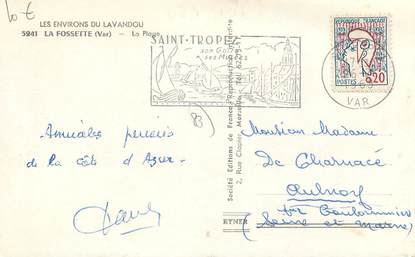 10 €
LES ENVIRONS DU LAVANDOU
5241 LA FOSSETTE (Var) — La Plage
SAINT-TROPEZ
son Golfe
ses Musées
REPUBLIQUE FRANÇAISE
0,20
POSTES
VAR
83
Amicales pensées
de la Côte d'Azur
Société Editions de France - Reproduction interdite
2, Rue Clapier, Marseille - Tél.
Monsieur Madame
De Charnacé
Aulnoy
par Coulommiers
EYNER
(Seine et Marne)